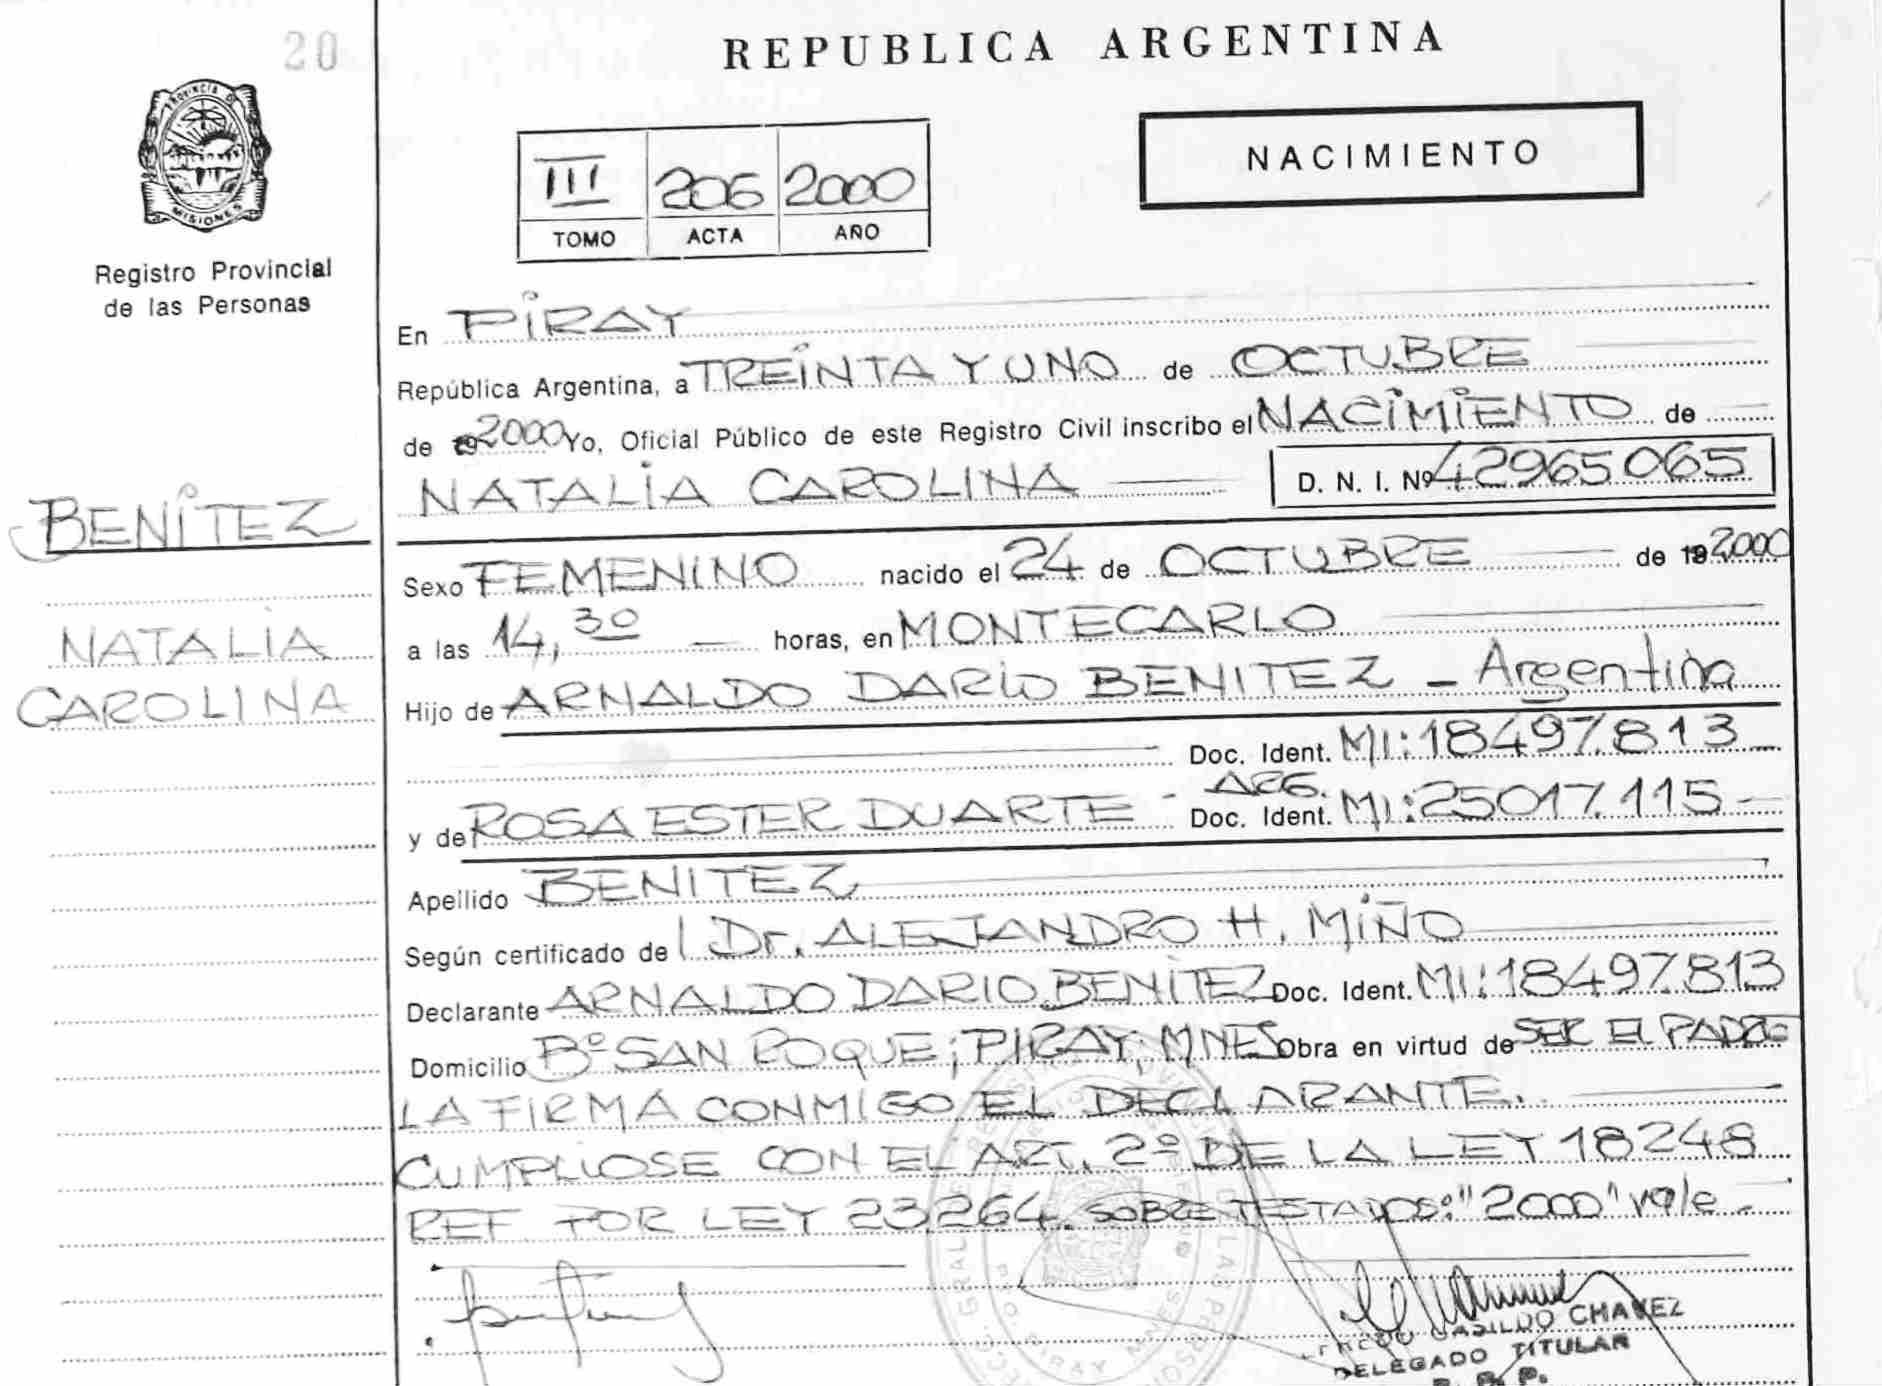 20
REPUBLICA ARGENTINA
PROVINCIA DE
MISIONES
Registro Provincial
de las Personas
III 206 2000
TOMO ACTA AÑO
NACIMIENTO
En PIRAY
República Argentina, a TREINTA Y UNO de OCTUBRE
de 192000 Yo, Oficial Público de este Registro Civil inscribo el NACIMIENTO de
NATALIA CAROLINA D. N. I. Nº 42965065
BENITEZ
NATALIA
CAROLINA
Sexo FEMENINO nacido el 24 de OCTUBRE de 192000
a las 14,30 horas, en MONTECARLO
Hijo de ARNALDO DARIO BENITEZ - Argentina
Doc. Ident. MI: 18497.813
y de ROSA ESTER DUARTE - ARG. Doc. Ident. MI: 25017.115
Apellido BENITEZ
Según certificado de Dr. ALEJANDRO H. MIÑO
Declarante ARNALDO DARIO BENITEZ Doc. Ident. MI: 18497.813
Domicilio Bº SAN ROQUE; PIRAY; MNES Obra en virtud de SER EL PADRE
LA FIRMA CONMIGO EL DECLARANTE.
CUMPLIOSE CON EL ART. 2º DE LA LEY 18248
REF POR LEY 23.264. SOBRE TESTADOS: "2000" vale
CHAVEZ
DELEGADO TITULAR